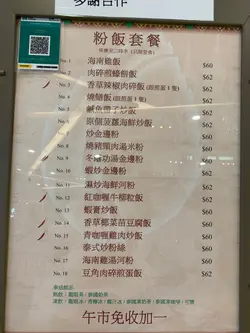 多謝合作
粉飯套餐
No. 1 海南雞飯 $60
No. 2 肉碎煎蠔餅飯 $62
No. 3 香草辣椒肉碎飯(跟煎蛋1隻) $62
No. 4 燒豬頸飯(跟煎蛋1隻) $60
No. 5 $62
No. 6 原個菠蘿海鮮炒飯 $62
No. 7 炒金邊粉 $60
No. 8 燒豬頸肉湯米粉 $60
No. 9 冬陰功湯金邊粉 $60
No. 10 蝦炒金邊粉 $62
No. 11 濕炒海鮮河粉 $62
No. 12 紅咖喱牛柳粒飯 $60
No. 13 蝦膏炒飯 $60
No. 14 香草椰菜苗豆腐飯 $60
No. 15 青咖喱雞肉炒飯 $60
No. 16 泰式炒粉絲 $60
No. 17 海南雞湯河粉 $60
No. 18 豆角肉碎煎蛋飯 $62
午市免收加一